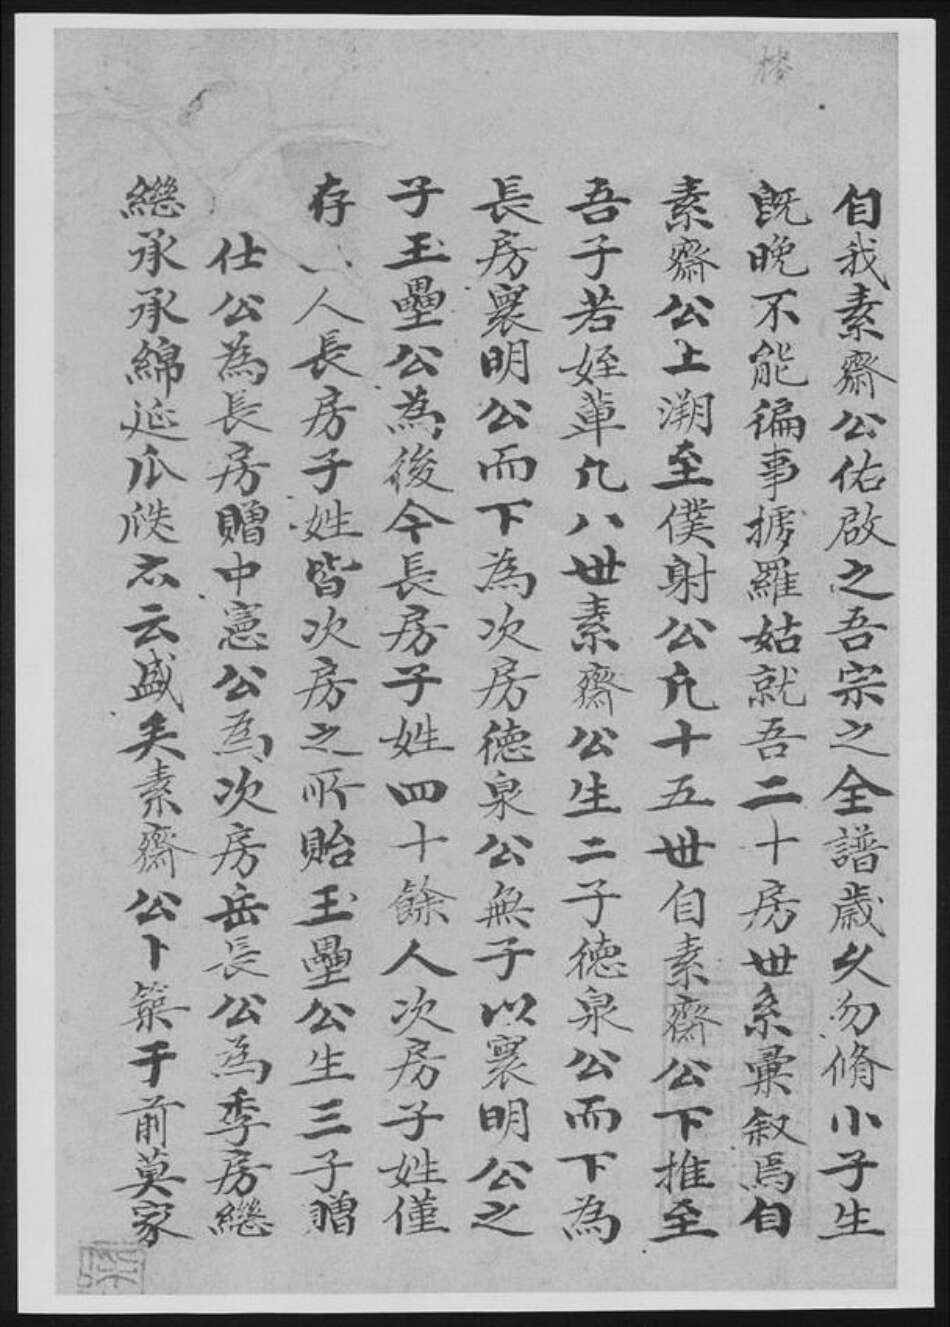 自我素齋公佑啟之吾宗之全譜歲久勿脩小子生
既晚不能徧事摭羅姑就吾二十房世系彙叙焉自
素齋公上溯至僕射公凡十五世自素齋公下推至
吾子若姪輩凡八世素齋公生二子德泉公而下為
長房寰明公而下為次房德泉公無子以寰明公之
子玉壘公為後今長房子姓四十餘人次房子姓僅
存八人長房子姓皆次房之所貽玉壘公生三子贈
仕公為長房贈中憲公為次房岳長公為季房繼
繼承承綿延瓜瓞亦云盛矣素齋公卜築于前莫家